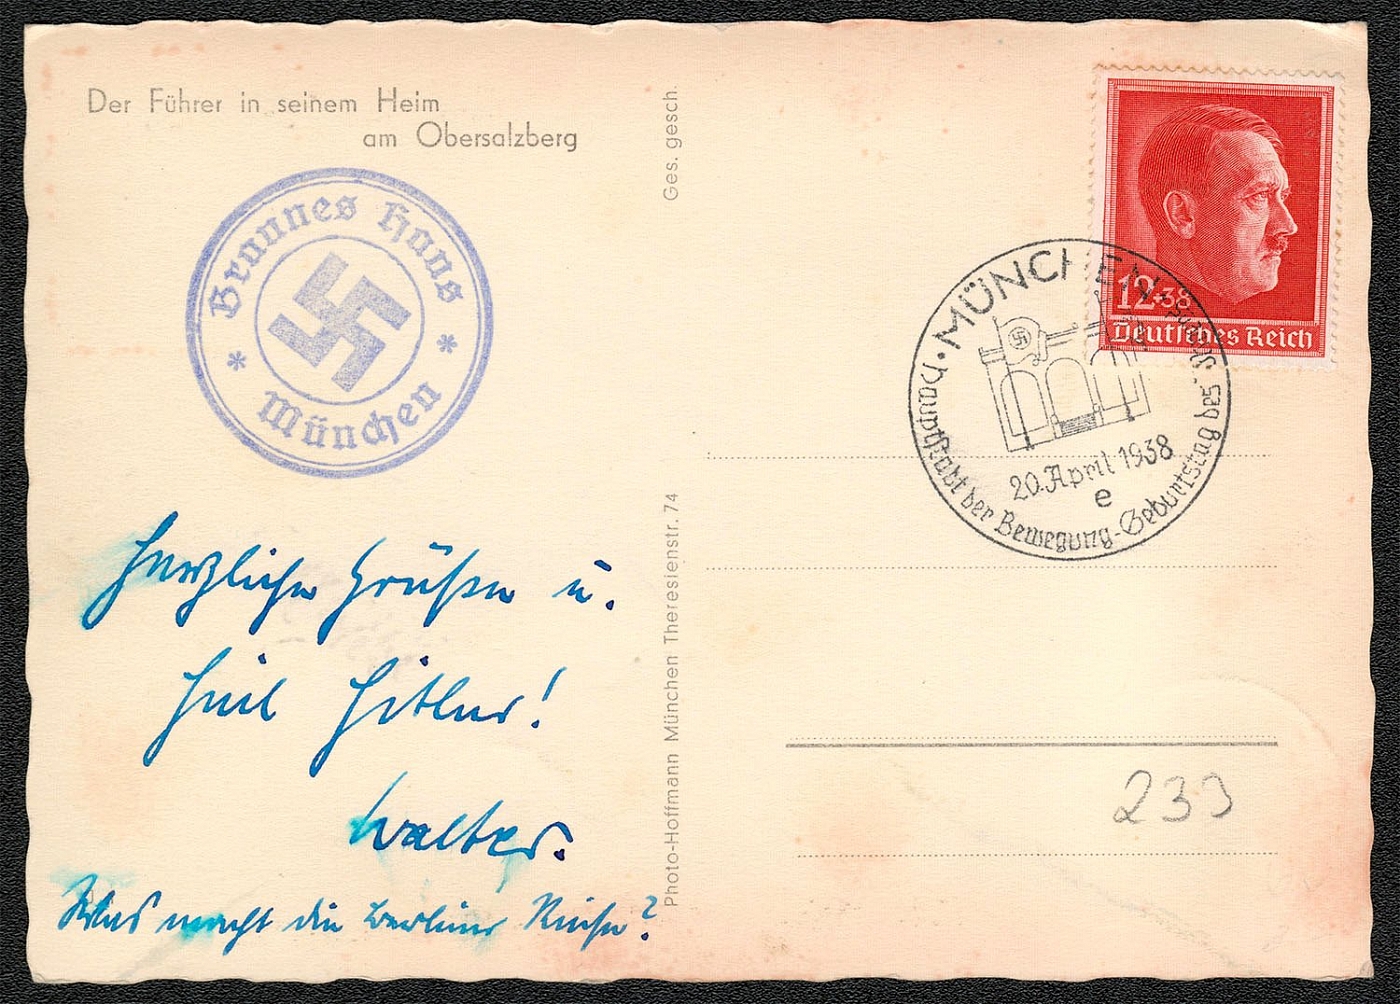 Der Führer in seinem Heim
am Obersalzberg
Braunes Haus
* München *
Herzliche Grüße u.
Heil Hitler!
Walter.
Was macht die Berliner Reise?
Ges. gesch.
Photo-Hoffmann München Theresienstr. 74
12+38
Deutsches Reich
MÜNCHEN
Hauptstadt der Bewegung - Geburtstag des Führers
20. April 1938
e
233